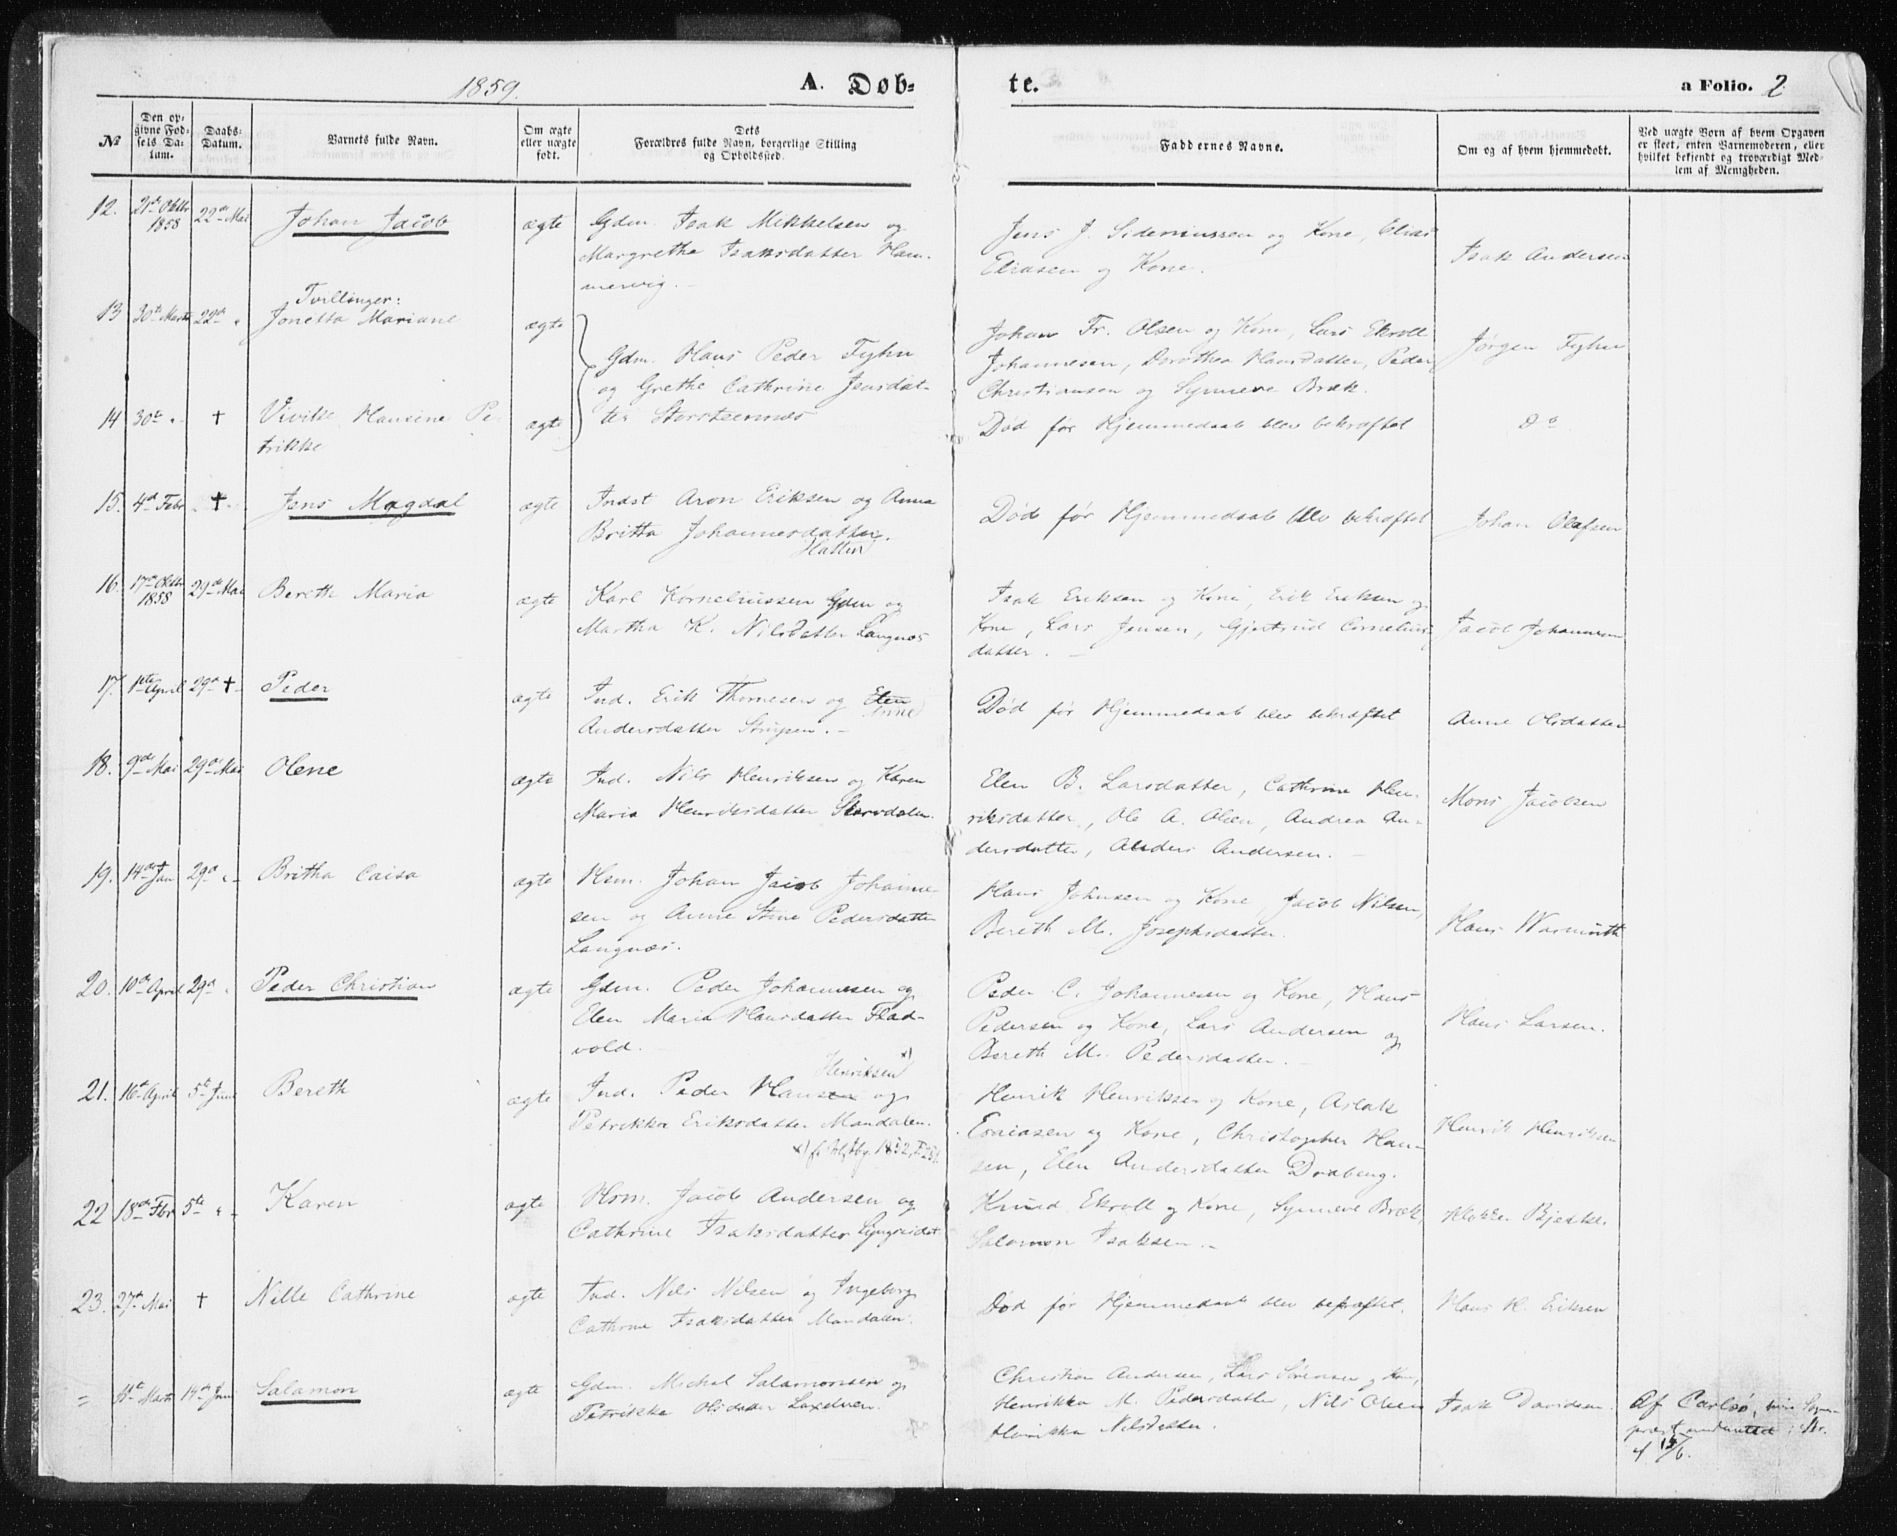 1859.
A. Døb-
te.
a Folio. 2.
№
Den op-
givne Fød-
sels Da-
tum.
Daabs-
Datum.
Barnets fulde Navn.
Om ægte
eller uægte
født.
Dets
Forældres fulde Navn, borgerlige Stilling
og Opholdssted.
Faddernes Navne.
Om og af hvem hjemmedøbt.
Ved uægte Børn af hvem Opgaven
er skeet, enten Barnemoderen, eller
hvilket bekjendt og troværdigt Med-
lem af Menigheden.
12.
21de Oktbr
1858
22de Mai
Johan Jacob
ægte
Gdm. Isak Mikkelsen og
Margrethe Isaksdatter Ham-
mervig.
Jens J. Sideniussen og Kone, Elias
Eliasen og Kone.
Isak Andersen
13
30te Marts
22de "
Tvillinger:
Jonetta Mariane
ægte
Gdm. Hans Peder Fyhn
og Grethe Cathrine Jensdat-
ter Storsteennæs
Johan Fr. Olsen og Kone, Lars Ekroll
Johannesen, Dorothea Hansdatter, Peder
Christiansen og Synneve Bræk.
Jørgen Fyhn
14
30te "
†
Vivike Hansine Pe-
trikke
ægte
Død før Hjemmedaab blev bekræftet
Do
15.
4de Febr
†
Jens Magdal
ægte
Indst Aron Eriksen og Anna
Britta Johannesdatter.
Hatten
Død før Hjemmedaab blev bekræftet
Johan Olafsen
16.
17de Oktbr
1858
29de Mai
Bereth Maria
ægte
Karl Korneliussen Gdm og
Martha K. Nilsdatter Langnæs
Isak Eriksen og Kone, Erik Eriksen og
Kone, Lars Jensen, Gjertrud Cornelius-
datter.
Jacob Johannesen
17.
1ste April
29de †
Peder
ægte
Ind. Erik Thomesen og Elen
Anne
Andersdatter Stupen.
Død før Hjemmedaab blev bekræftet
Anne Olsdatter
18.
9de Mai
29de Mai
Olene
ægte
Ind. Nils Henriksen og Karen
Maria Henriksdatter Skarvdalen.
Elen B. Larsdatter, Cathrine Hen-
riksdatter, Ole A. Olsen, Andrea An-
dersdatter, Anders Andersen.
Mons Jacobsen
19.
14de Jan
29de "
Britha Caisa
ægte
Hsm. Johan Jacob Johanne-
sen og Anne Stine Pedersdatter
Langnæs.
Hans Johnsen og Kone, Jacob Nilsen,
Bereth M. Josephsdatter.
Hans Warmuth
20.
10de April
29de "
Peder Christian
ægte
Gdm. Peder Johannesen og
Elen Maria Hansdatter Flad-
vold.
Peder C. Johannesen og Kone, Hans
Pedersen og Kone, Lars Andersen og
Bereth M. Pedersdatter.
Hans Larsen.
21.
16de April
5te Juni
Bereth
ægte
Henriksen x)
Ind. Peder Hansen og
Petrikka Eriksdatter Mandalen.
Henrik Henriksen og Kone, Aslak
Esaiasen og Kone, Christopher Han-
sen, Elen Andersdatter Draberg.
Henrik Henriksen
22
18de Fbr
5te "
Karen
ægte
Hsm. Jacob Andersen og
Cathrine Isaksdatter Lyngseidet
Knud Ekroll og Kone, Synneve Bræk,
Salomon Isaksen.
Klokker Bjerke.
23.
27de Mai
†
Nille Cathrine
ægte
Ind. Nils Nilsen og Ingeborg
Cathrine Isaksdatter Mandalen.
Død før Hjemmedaab blev bekræftet.
Hans H. Eriksen
=
4de Marts
14de Juni
Salamon
ægte
Gdm. Michal Salamonsen og
Petrikke Olsdatter
Christian Andersen, Lars Sørensen og Kone,
Henrikka M. Pedersdatter, Nils Olsen
Henrikka Nilsdatter.
Isak Davidsen.
Af Carlsø,